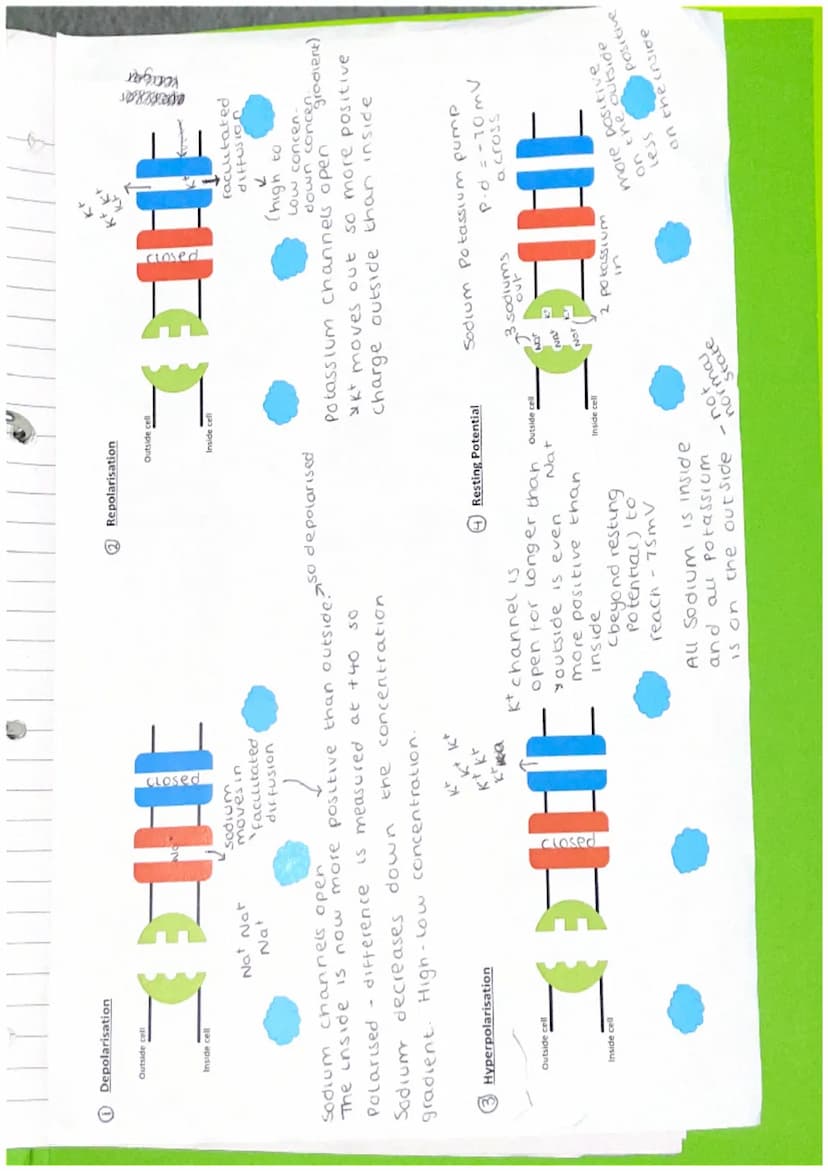 ① Depolarisation
Outside cell
Inside cell
Na⁺
closed
Na⁺ Na⁺
Na⁺
sodium
moves in
facilitated
diffusion
Sodium channels open
The inside is now more positive than outside. → so depolarised
polarised - difference is measured at +40 so
Sodium decreases down the concentration
gradient. High-low concentration.
② Repolarisation
Outside cell
Inside cell
closed
K⁺
K⁺
K⁺ K⁺
K⁺
facilitated
diffusion
(high to
low concen-
down concen
gradient)
Potassium channels open
K⁺ moves out so more positive
charge outside than inside
③ Hyperpolarisation
Outside cell
Inside cell
closed
K⁺ K⁺ K⁺
K⁺ K⁺
K⁺
K⁺ channel is
open for longer than
outside is even
more positive than
inside
(beyond resting
potential) to
reach -75mV
All Sodium is inside
and all potassium
is on the outside - not
normal
state
④ Resting Potential
Sodium potassium pump
p.d = -70mV
across
3 sodiums
out
Outside cell
Inside cell
Na⁺
Na⁺
Na⁺
Na⁺
K⁺
K⁺
2 potassium
in
more positive
more positive
on the outside
less positive
on the inside